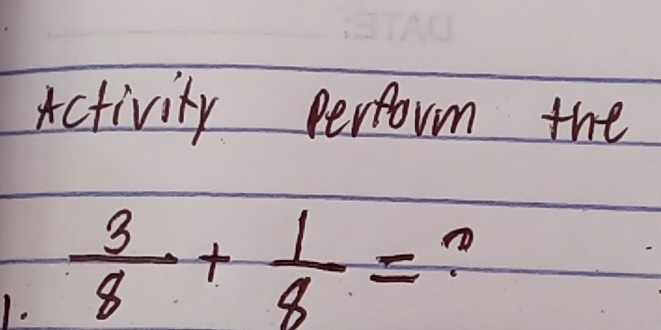 DATE:
Activity Perform the
1. 3/8 + 1/8 = ?